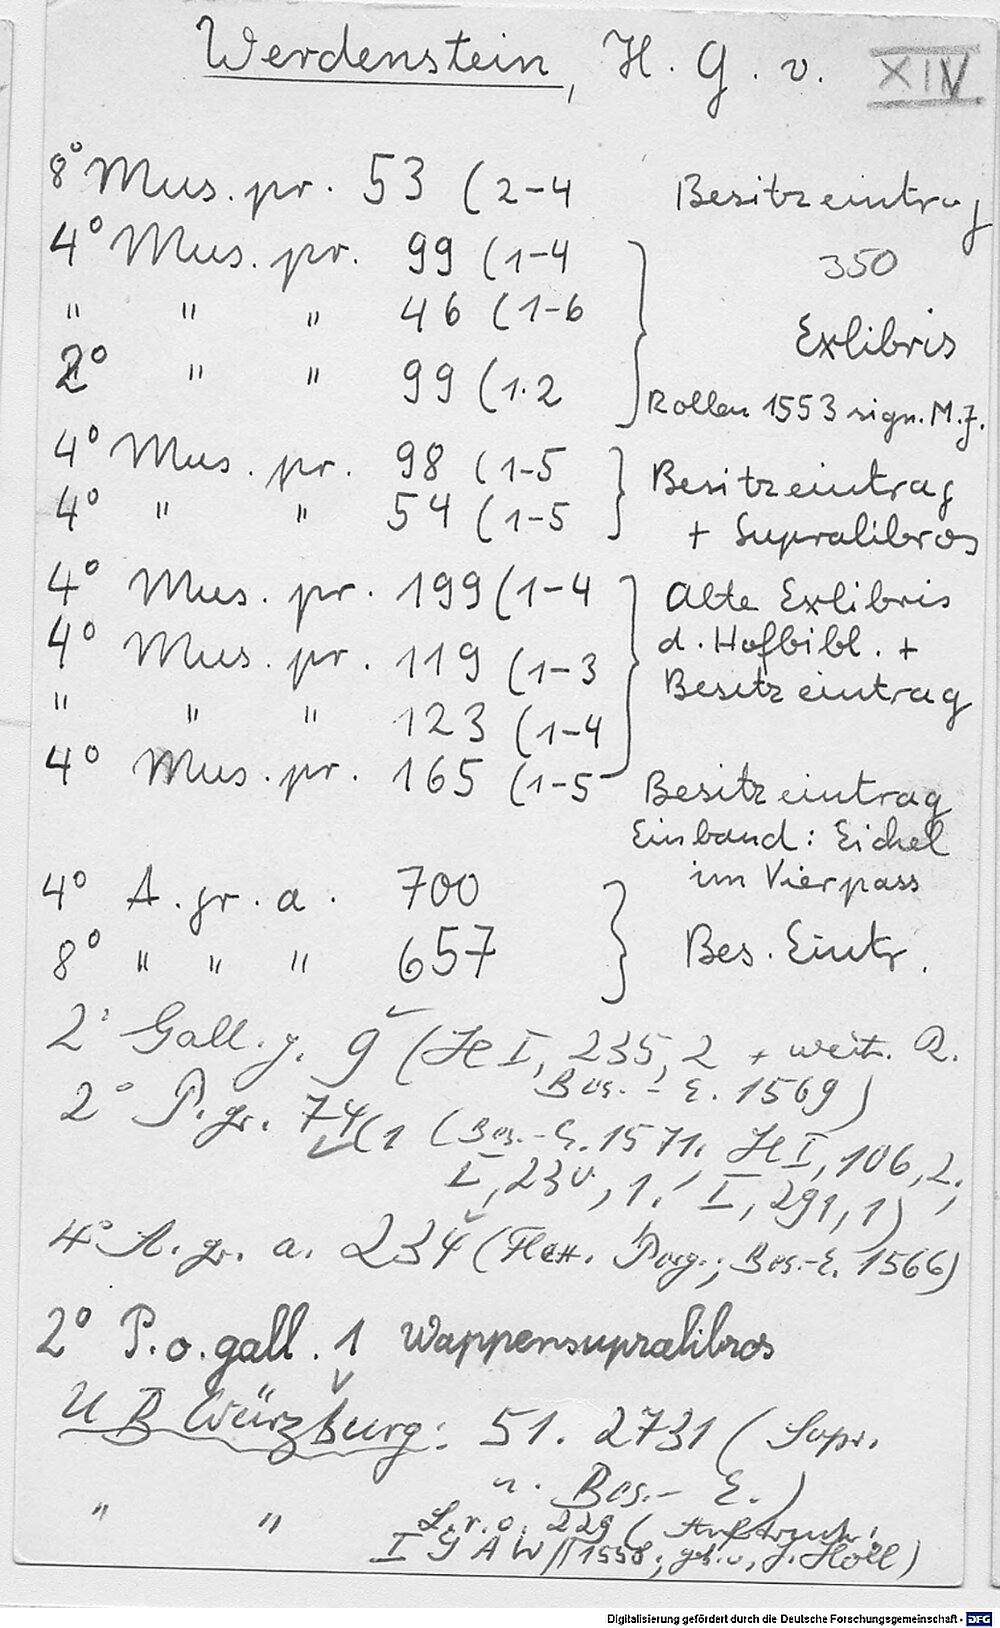 Werdenstein, H. G. v. XIV
8° Mus. pr. 53 (2-4 Besitzeintrag
4° Mus. pr. 99 (1-4 350
" " " 46 (1-6 Exlibris
2° " " 99 (1.2 Rollen 1553 sign. M.J.
4° Mus. pr. 98 (1-5 Besitzeintrag
4° " " 54 (1-5 + Supralibros
4° Mus. pr. 199 (1-4 Alte Exlibris
4° Mus. pr. 119 (1-3 d. Hofbibl. +
" " " 123 (1-4 Besitzeintrag
4° Mus. pr. 165 (1-5 Besitzeintrag
Einband: Eichel
im Vierpass
4° A. gr. a. 700
8° " " " 657 Bes. Eintr.
2° Gall. g. 9 (H I, 235, 2 + weit. R.
Bes.-E. 1569)
2° P. gr. 74(1 (Bes.-E. 1571, H I, 106, 2;
I, 230, 1; I, 291, 1)
4° A. gr. a. 234 (Bes.-E. 1566)
2° P. o. gall. 1 Wappensupralibros
UB Würzburg: 51. 2731 (Supr.
u. Bes.-E.)
" " L. r. o. 229 (
I G A W 1558; geb. v. J. Holl)
Digitalisierung gefördert durch die Deutsche Forschungsgemeinschaft - DFG